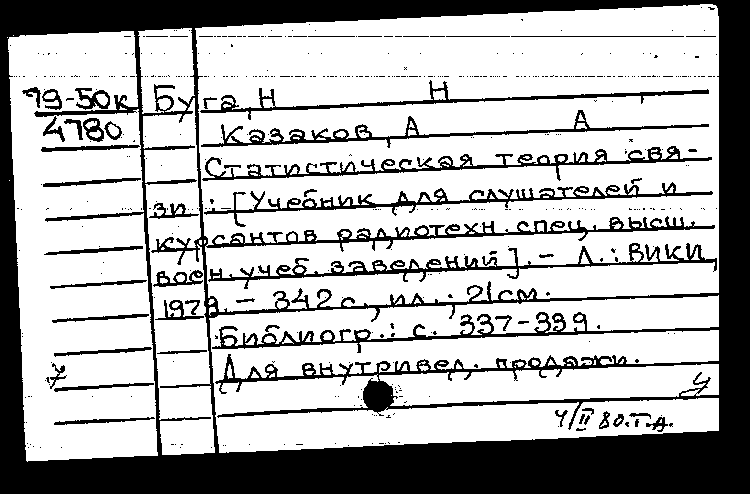 79-50к Буга, Н Н
4780 Казаков, А А
Статистическая теория свя-
зи : [Учебник для слушателей и
курсантов радиотехн. спец. высш.
воен. учеб. заведений]. - Л. : ВИКИ,
1979. - 342 с., ил. ; 21 см.
Библиогр.: с. 337-339.
Для внутривед. продажи.
4/II 80.